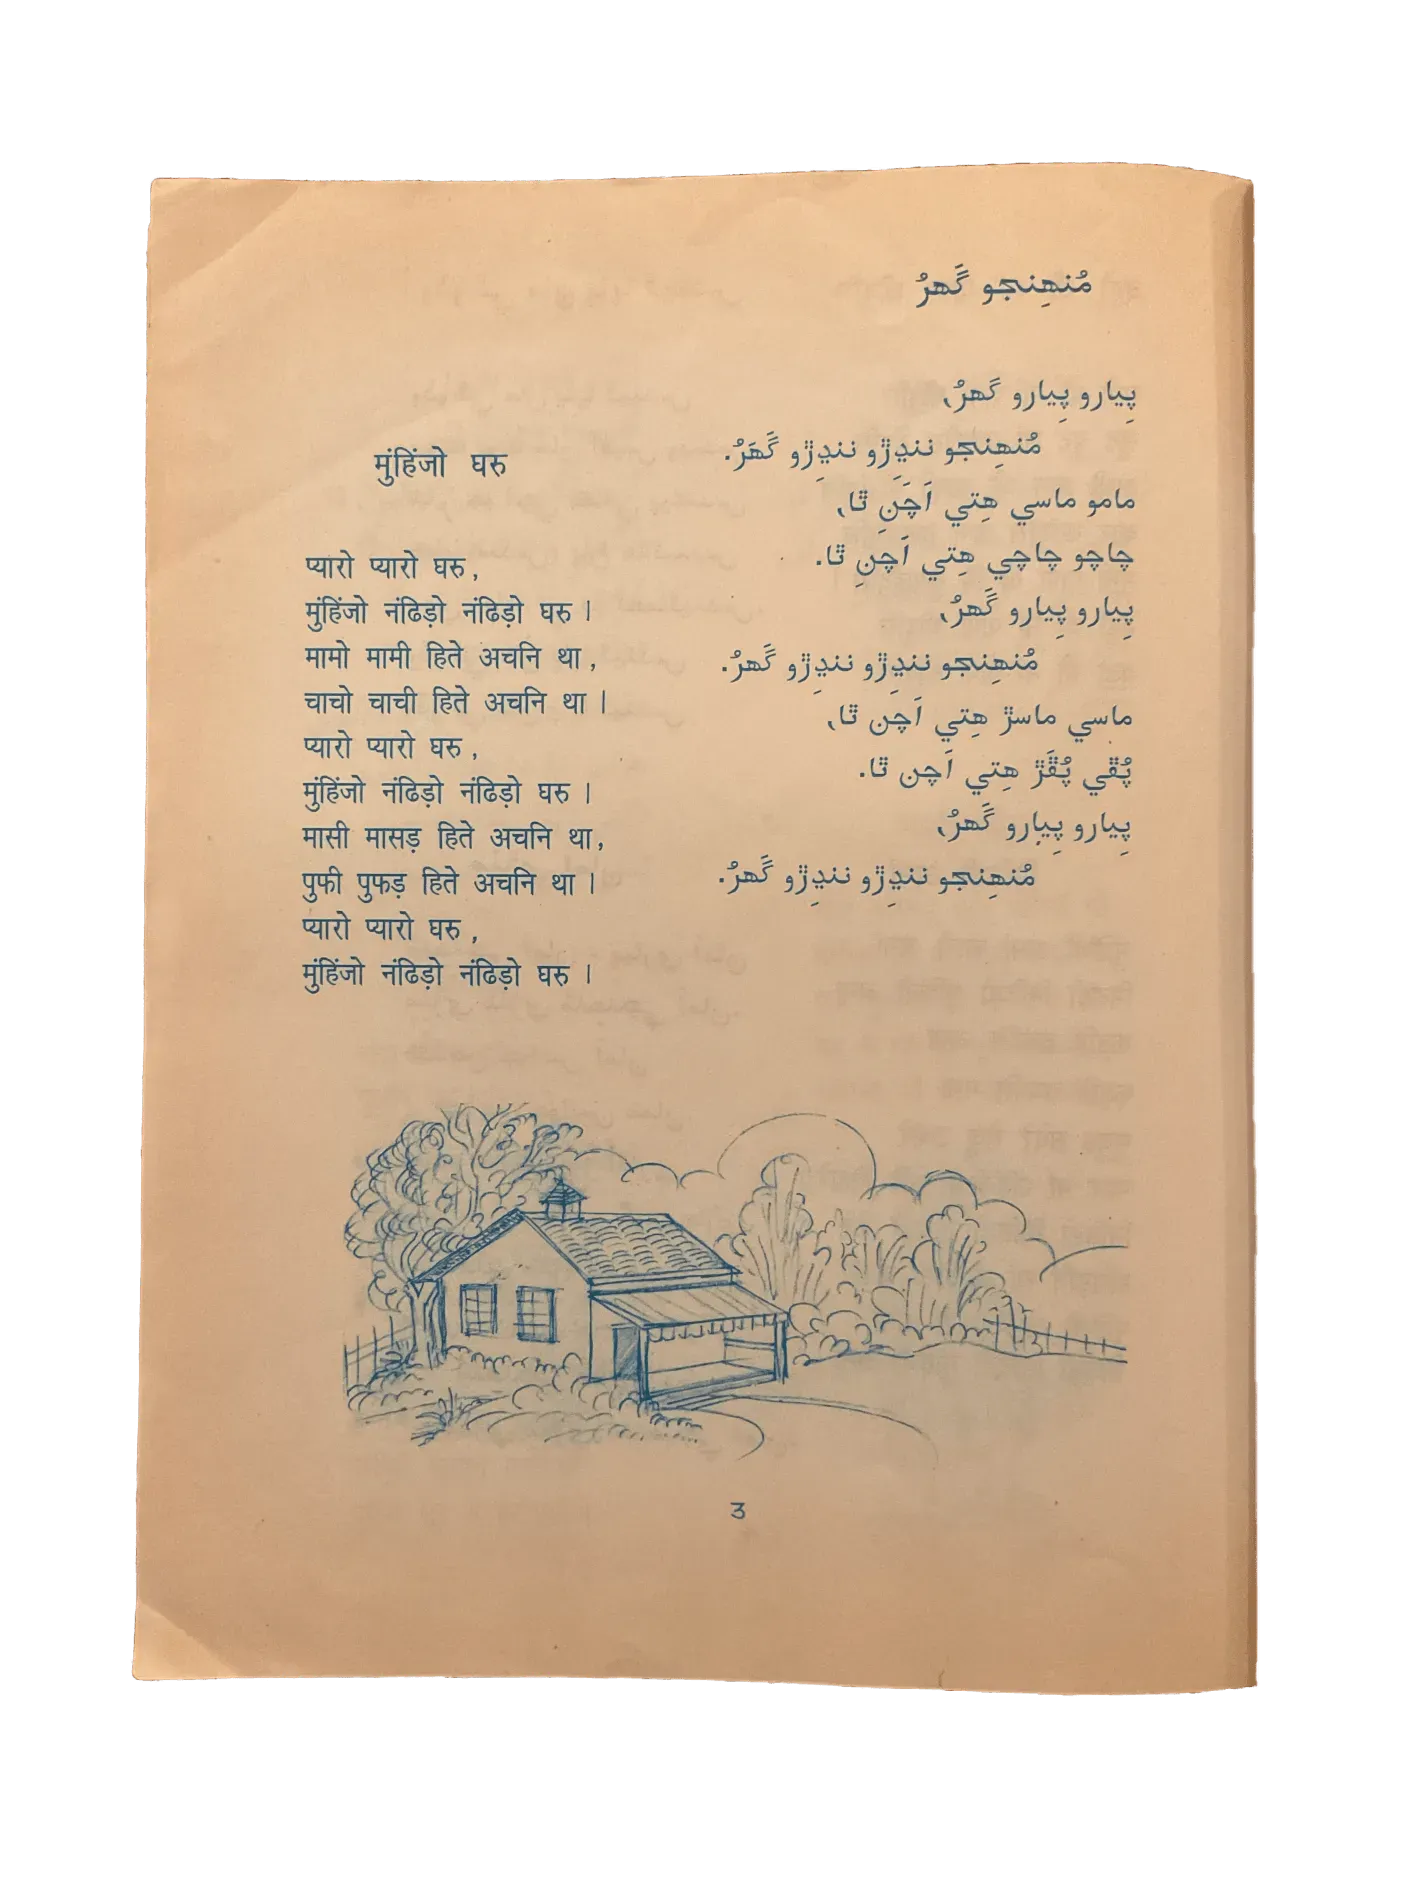 مُنهِنجو گَهرُ
پِيارو پِيارو گَهرُ،
مُنهِنجو ننڍِڙو ننڍِڙو گَهَرُ.
مامو ماسي هِتي اَچَنِ ٿا،
چاچو چاچي هِتي اَچنِ ٿا.
پِيارو پِيارو گَهرُ،
مُنهِنجو ننڍِڙو ننڍِڙو گَهرُ.
ماسي ماسڙ هِتي اَچن ٿا،
پُڦي پُڦَڙ هِتي اَچن ٿا.
پِيارو پِيارو گَهرُ،
مُنهِنجو ننڍِڙو ننڍِڙو گَهرُ.
मुंहिंजो घरु
प्यारो प्यारो घरु,
मुंहिंजो नंढिड़ो नंढिड़ो घरु।
मामो मामी हिते अचनि था,
चाचो चाची हिते अचनि था।
प्यारो प्यारो घरु,
मुंहिंजो नंढिड़ो नंढिड़ो घरु।
मासी मासड़ हिते अचनि था,
पुफी पुफड़ हिते अचनि था।
प्यारो प्यारो घरु,
मुंहिंजो नंढिड़ो नंढिड़ो घरु।
3